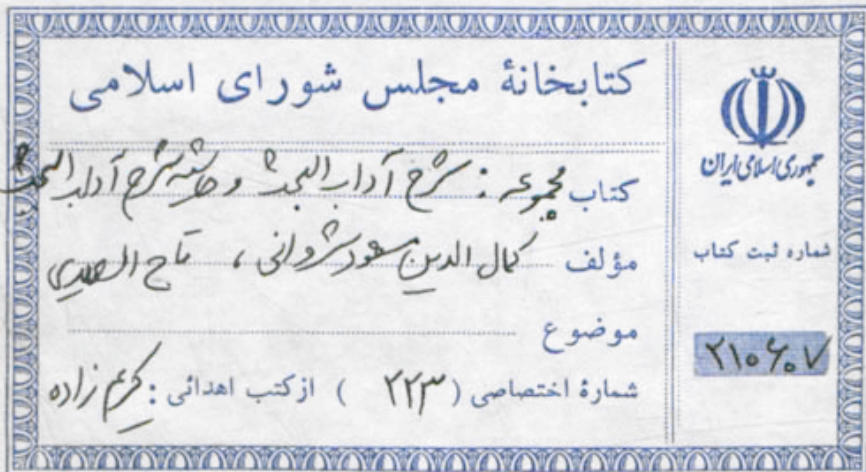 کتابخانهٔ مجلس شورای اسلامی
کتاب مجموعه : شرح آداب البحث و حاشیه شرح آداب البحث
مؤلف کمال الدین مسعود شروانی ، تاج السعیدی
موضوع
شمارهٔ اختصاصی ( ۲۲۳ ) از کتب اهدائی : کریم زاده
جمهوری اسلامی ایران
شماره ثبت کتاب
۲۱۰۶۰۷